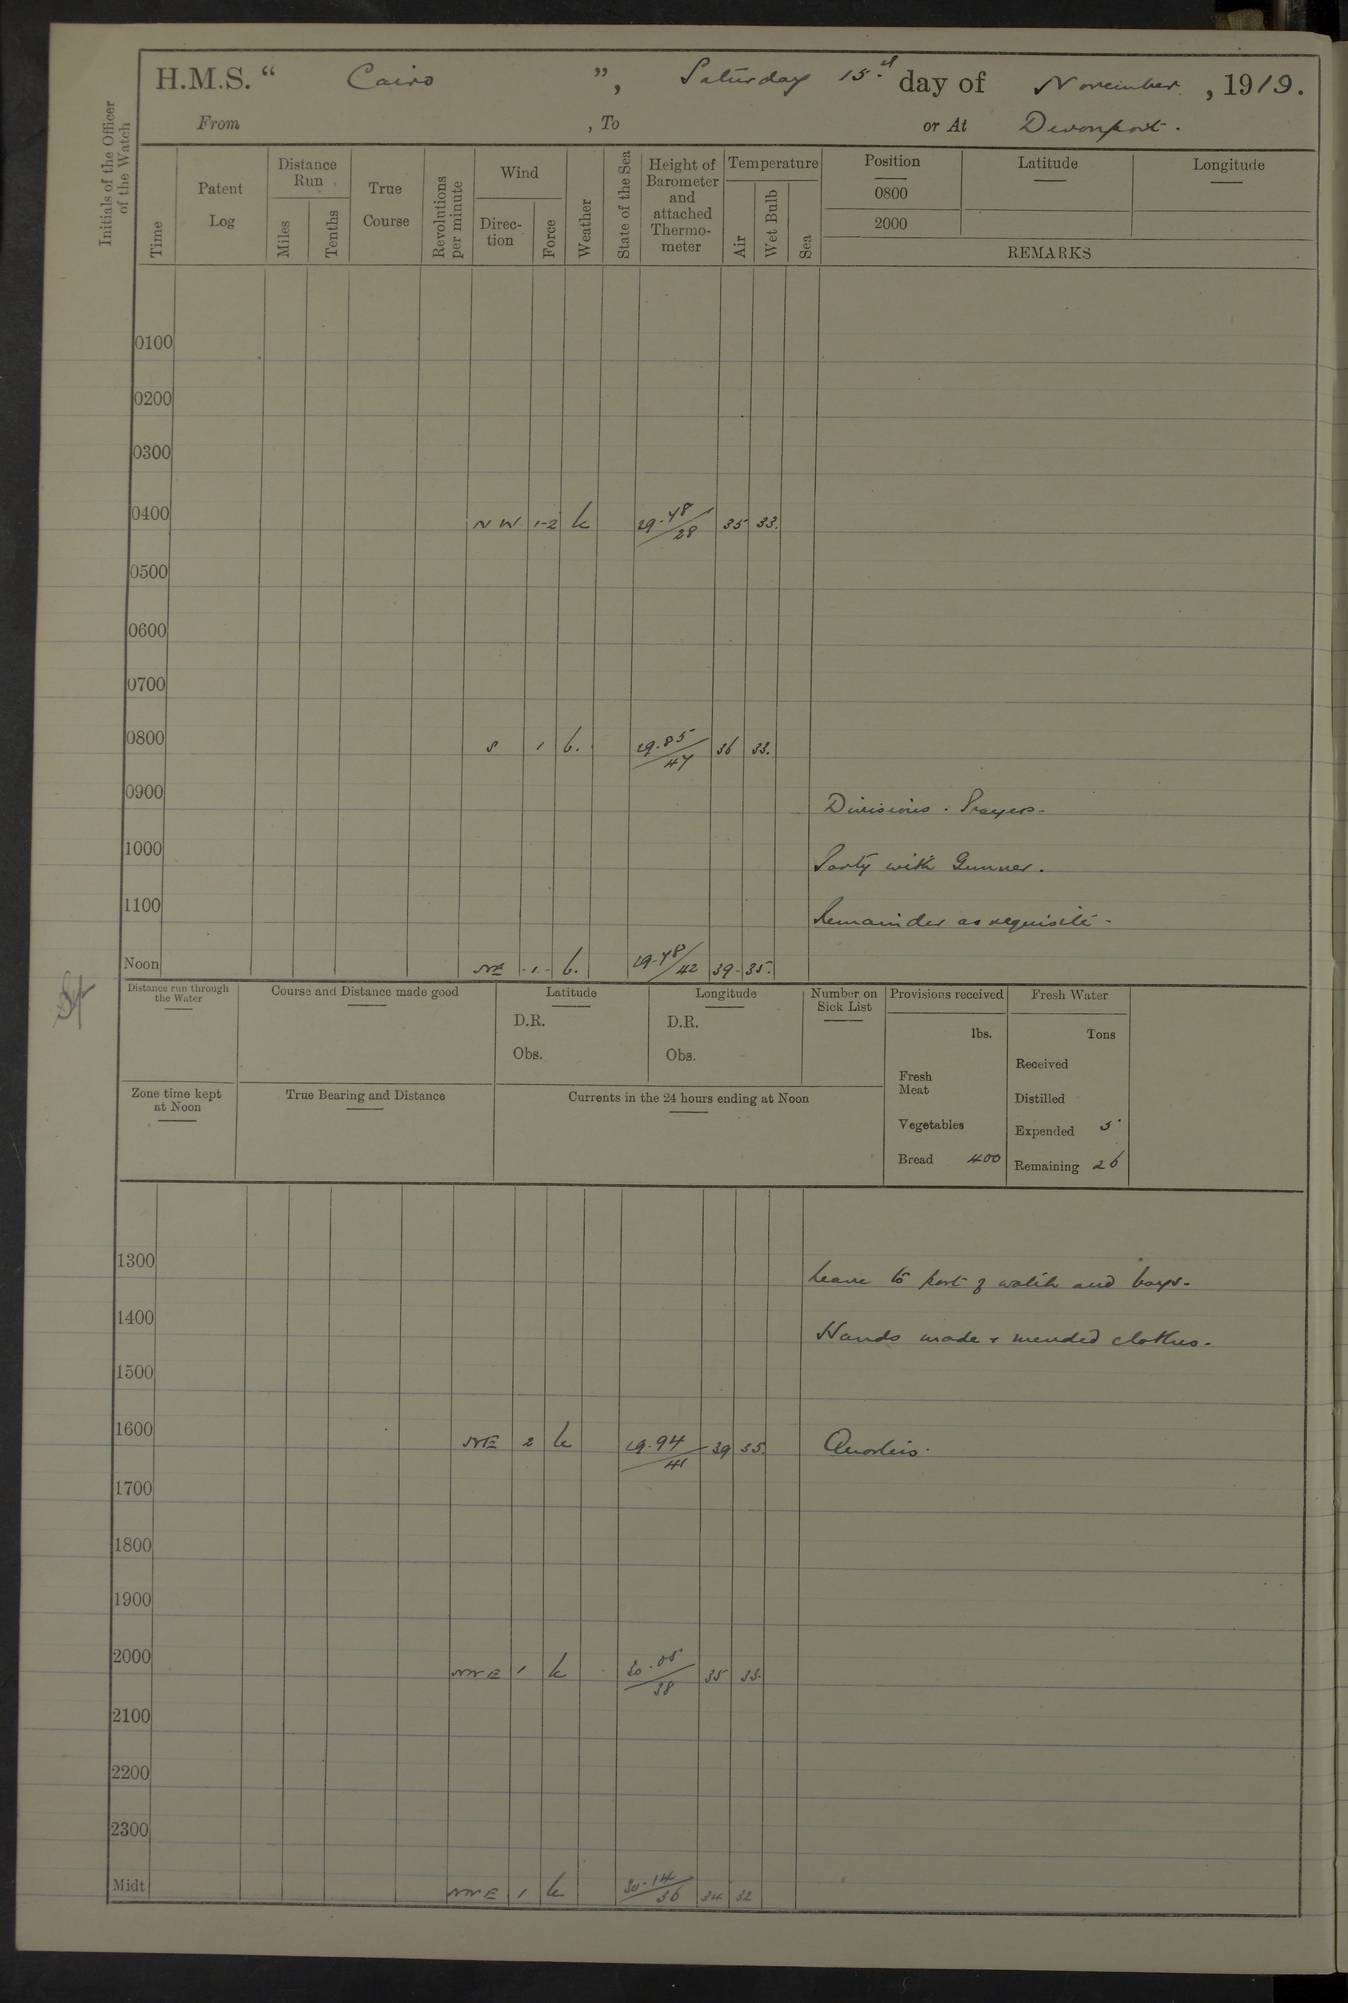 H.M.S. “ Cairo ”, Saturday 15th day of November, 1919.
From , To or At Devonport.
Initials of the Officer of the Watch
Time
Patent Log
Distance Run
Miles
Tenths
True Course
Revolutions per minute
Wind
Direc-tion
Force
Weather
State of the Sea
Height of Barometer and attached Thermo-meter
Temperature
Air
Wet Bulb
Sea
Position
0800
2000
Latitude
Longitude
REMARKS
0100
0200
0300
0400 NW 1-2 29.78/28 35 33.
0500
0600
0700
0800 S 1 b. 29.85/47 36 33.
0900 Divisions. Prayers-
1000 Party with Gunner.
1100 Remainder as requisite-
Noon NE -1- b. 29.78/42 39- 35.
Distance run through the Water
Course and Distance made good
Latitude
D.R.
Obs.
Longitude
D.R.
Obs.
Number on Sick List
Provisions received
lbs.
Fresh Meat
Vegetables
Bread 400
Fresh Water
Tons
Received
Distilled
Expended 5
Remaining 26
Zone time kept at Noon
True Bearing and Distance
Currents in the 24 hours ending at Noon
1300 Leave to part of watch and boys-
1400 Hands made & mended clothes-
1500
1600 NE 2 29.94/41 39 35. Quarters.
1700
1800
1900
2000 NNE 1 30.05/38 35 33.
2100
2200
2300
Midt NNE 1 30.14/36 34 32